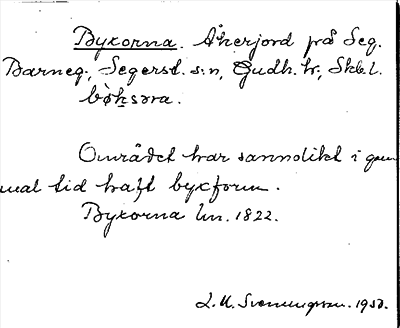 Byxorna. Åkerjord på Seg.
Barneg., Segerst. s:n, Gudh. hr., Skb. l.
bøksɔra.
Området har sannolikt i gam
mal tid haft byxform.
Byxorna lm. 1822.
L. M. Svenungsson. 1930.